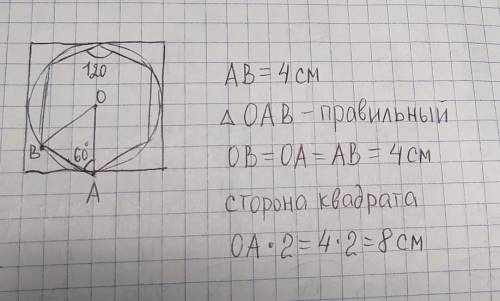 120
O
B
60°
A
AB = 4 см
△ OAB – правильный
OB = OA = AB = 4 см
сторона квадрата
OA · 2 = 4 · 2 = 8 см